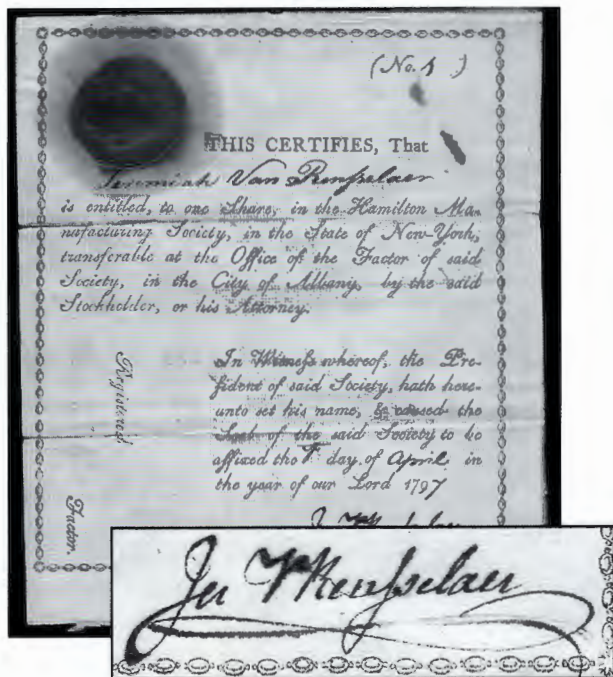 (No. 1 )
THIS CERTIFIES, That
Jeremiah Van Renſselaer
is entitled, to one Share, in the Hamilton Ma-
nufacturing Society, in the State of New-York,
transferable at the Office of the Factor of said
Society, in the City of Albany, by the said
Stockholder, or his Attorney.
Registered
Factor.
In Witneſs whereof, the Pre-
ſident of said Society, hath here-
unto set his name, & cauſed the
Seal of the said Society to be
affixed the day of April in
the year of our Lord 1797
Jer V Renſselaer